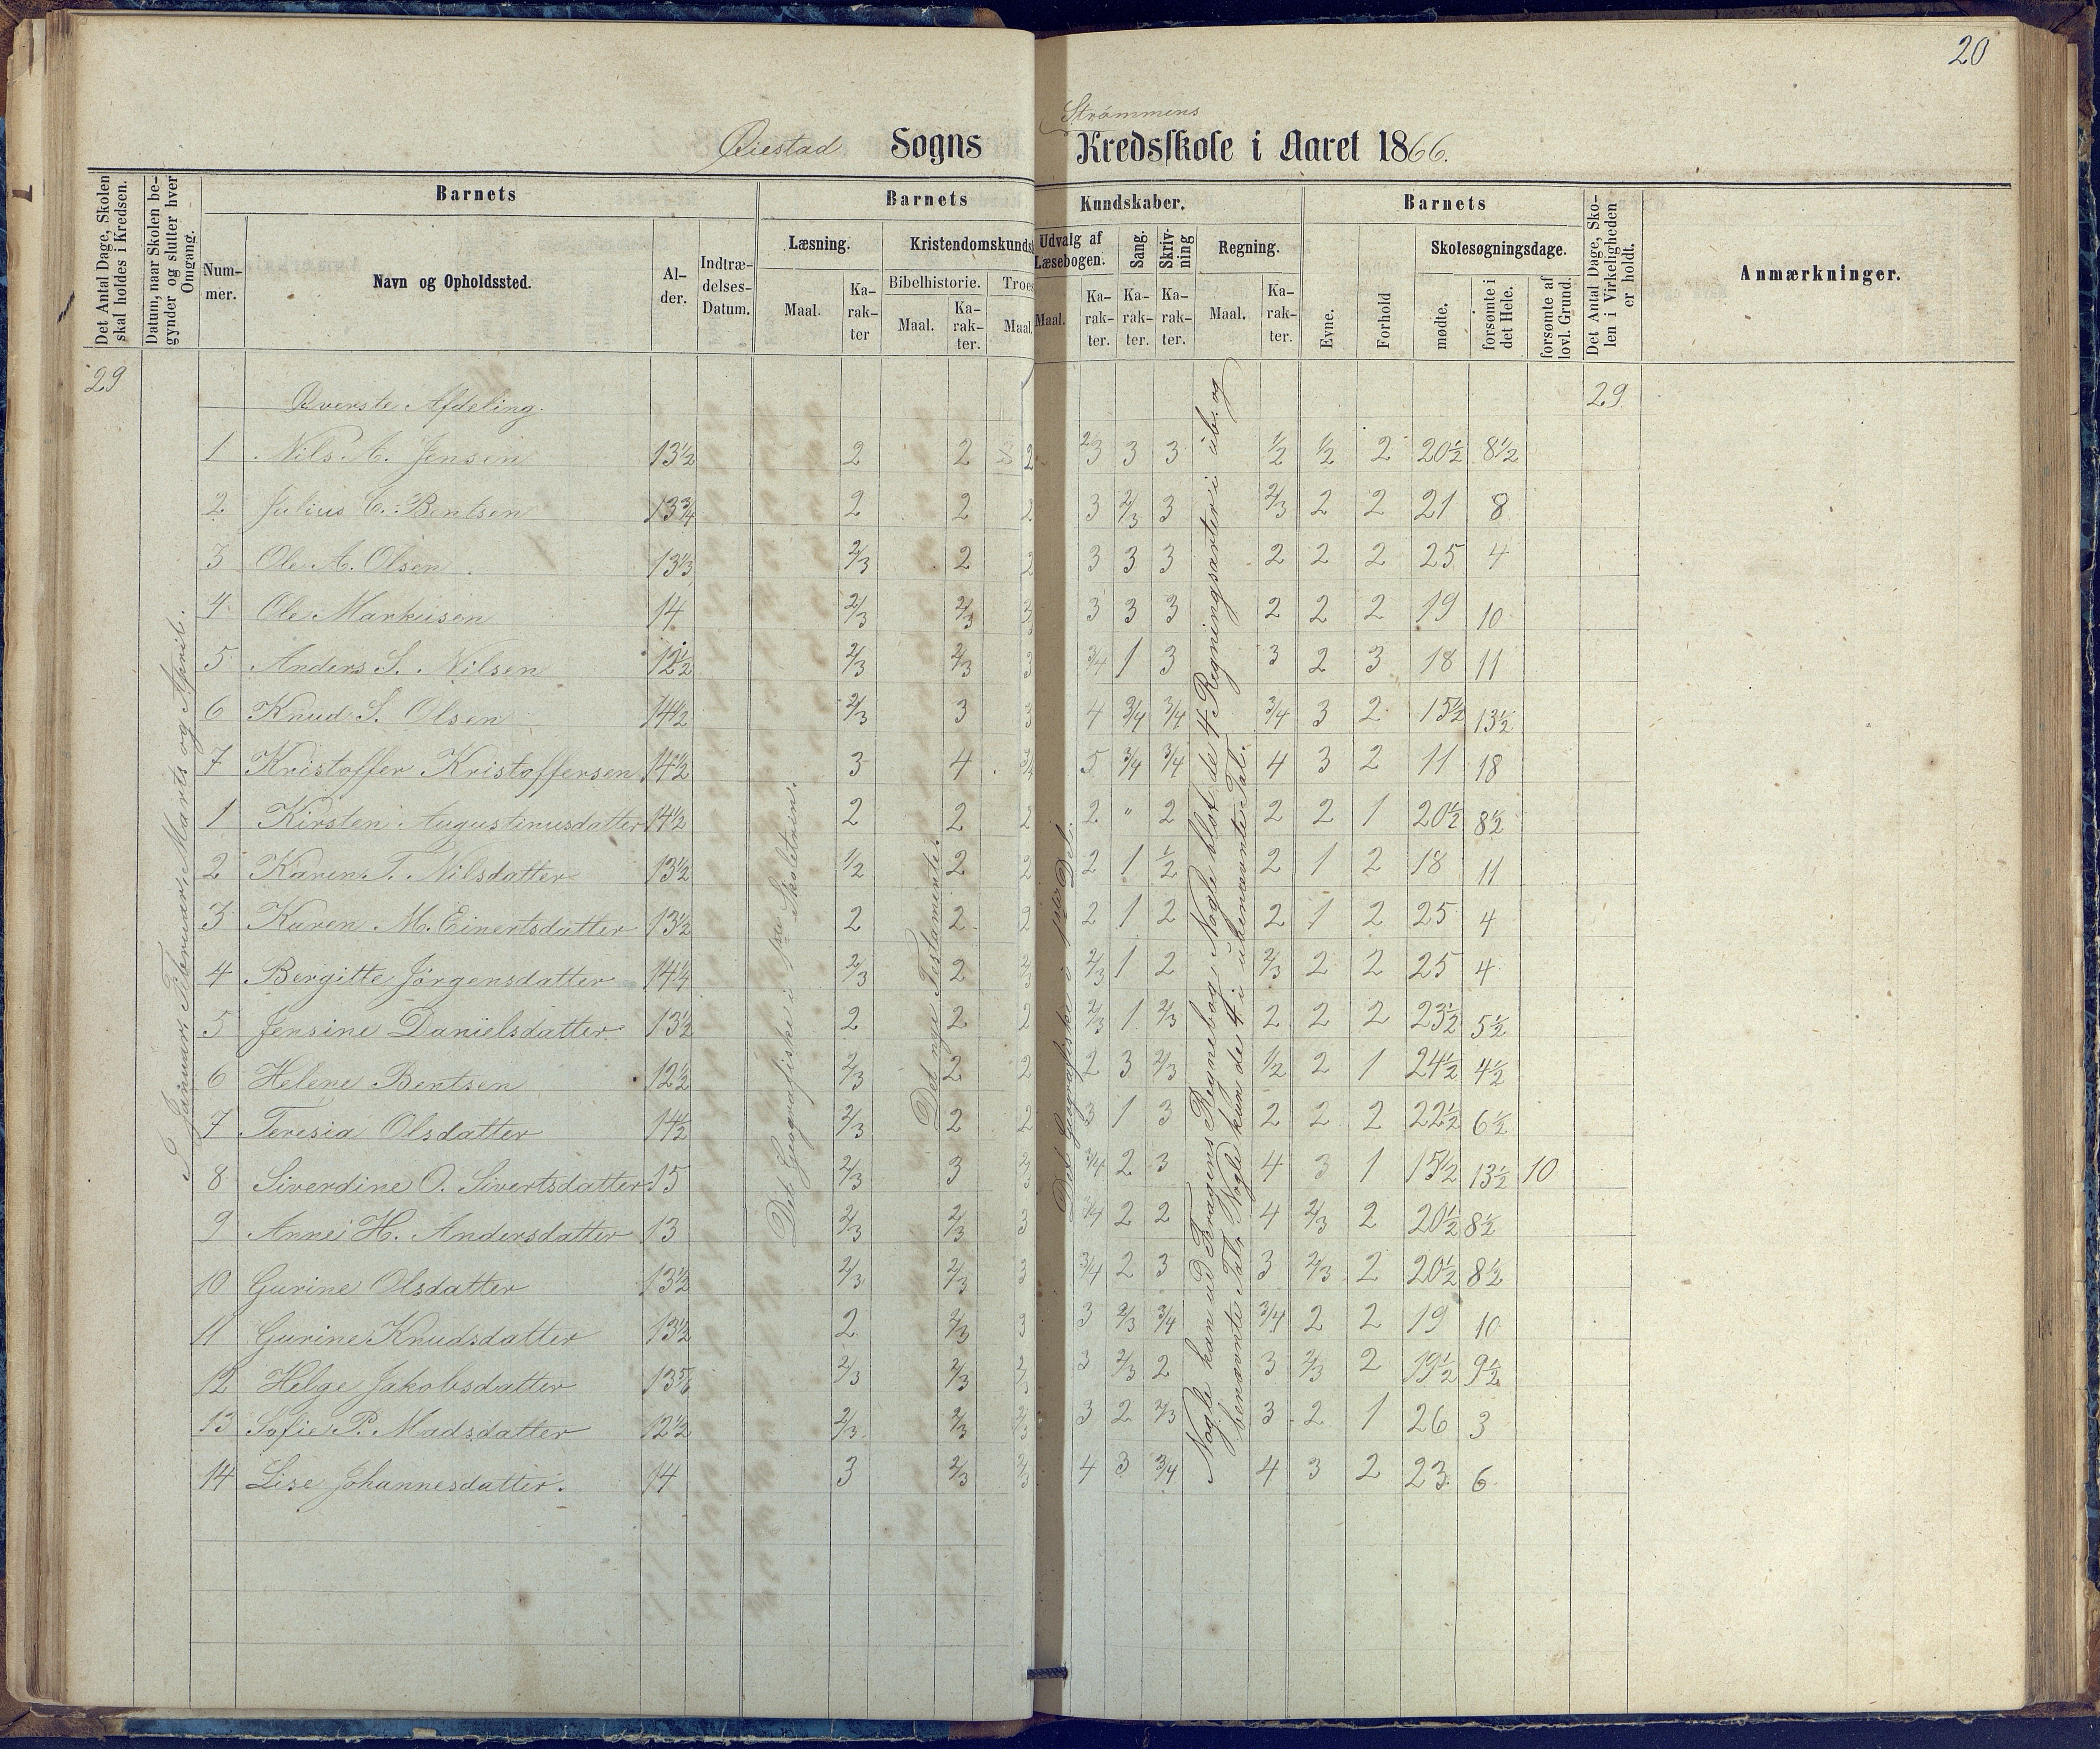 20
Strömmens
Øiestad Sogns Kredsskole i Aaret 1866.
Det Antal Dage, Skolen skal holdes i Kredsen.
Datum, naar Skolen begynder og slutter hver Omgang.
Barnets
Nummer.
Navn og Opholdssted.
Alder.
Indtrædelses-Datum.
Barnets Kundskaber.
Læsning.
Maal.
Karakter
Kristendomskunds
Bibelhistorie.
Maal.
Karakter.
Troes
Maal.
Udvalg af Læsebogen.
Maal.
Karakter.
Sang.
Karakter.
Skrivning
Karakter.
Regning.
Maal.
Karakter.
Barnets
Evne.
Forhold
Skolesøgningsdage.
mødte.
forsømte i det Hele.
forsømte af lovl. Grund.
Det Antal Dage, Skolen i Virkeligheden er holdt.
Anmærkninger.
29 Øverste Afdeling. 29
1 Nils A. Jensen 13½ 2 2 2 2/3 3 3 ½ ½ 2 20½ 8½
2 Julius C. Bentsen 13¾ 2 2 2 3 2/3 3 2/3 2 2 21 8
3 Ole A. Olsen 13⅓ 2/3 2 2 3 3 3 2 2 2 25 4
4 Ole Markusen 14 2/3 2/3 3 3 3 3 2 2 2 19 10
5 Anders S. Nilsen 12½ 2/3 2/3 3 3/4 1 3 3 2 3 18 11
6 Knud S. Olsen 14½ 2/3 3 3 4 3/4 3/4 3/4 3 2 15½ 13½
7 Kristoffer Kristoffersen 14½ 3 4 3/4 5 3/4 3/4 4 3 2 11 18
1 Kirsten Augustinusdatter 14½ 2 2 2 2 " 2 2 2 1 20½ 8½
2 Karen T. Nilsdatter 13½ ½ 2 2 2 1 ½ 2 1 2 18 11
3 Karen M. Einertsdatter 13½ 2 2 2 2 1 2 2 1 2 25 4
4 Bergitte Jörgensdatter 14¼ 2/3 2 2/3 2/3 1 2 2/3 2 2 25 4
5 Jensine Danielsdatter 13½ 2 2 2 2/3 1 2/3 2 2 2 23½ 5½
6 Helene Bentsen 12½ 2/3 2 2 2 3 2/3 ½ 2 1 24½ 4½
7 Teresia Olsdatter 14½ 2/3 2 2 3 1 3 2 2 2 22½ 6½
8 Siverdine O. Sivertsdatter 15 2/3 3 2/3 3/4 2 3 4 3 1 15½ 13½ 10
9 Anne H. Andersdatter 13 2/3 2/3 3 3/4 2 2 4 2/3 2 20½ 8½
10 Gurine Olsdatter 13½ 2/3 2/3 3 3/4 2 3 3 2/3 2 20½ 8½
11 Gurine Knudsdatter 13½ 2 2/3 3 3 2/3 3/4 3/4 2 2 19 10
12 Helge Jakobsdatter 13 5/6 2/3 2/3 2/3 3 2/3 2 3 2/3 2 19½ 9½
13 Sofie P. Madsdatter 12½ 2/3 2/3 2/3 3 2 2/3 3 2 1 26 3
14 Lise Johannesdatter. 14 3 2/3 2/3 4 3 3/4 4 3 2 23 6
I Januar, Februar, Marts og April.
Det Geografiske i 1ste Skoletrin.
Det nye Testamente.
Det Geografiske i Del.
Nogle kan ud Fragens Regnebog, Nogle blot de 4 Regningsarter i ub. og
benævnte Tal, Nogle kun de 4 i ubenævnte Tal.